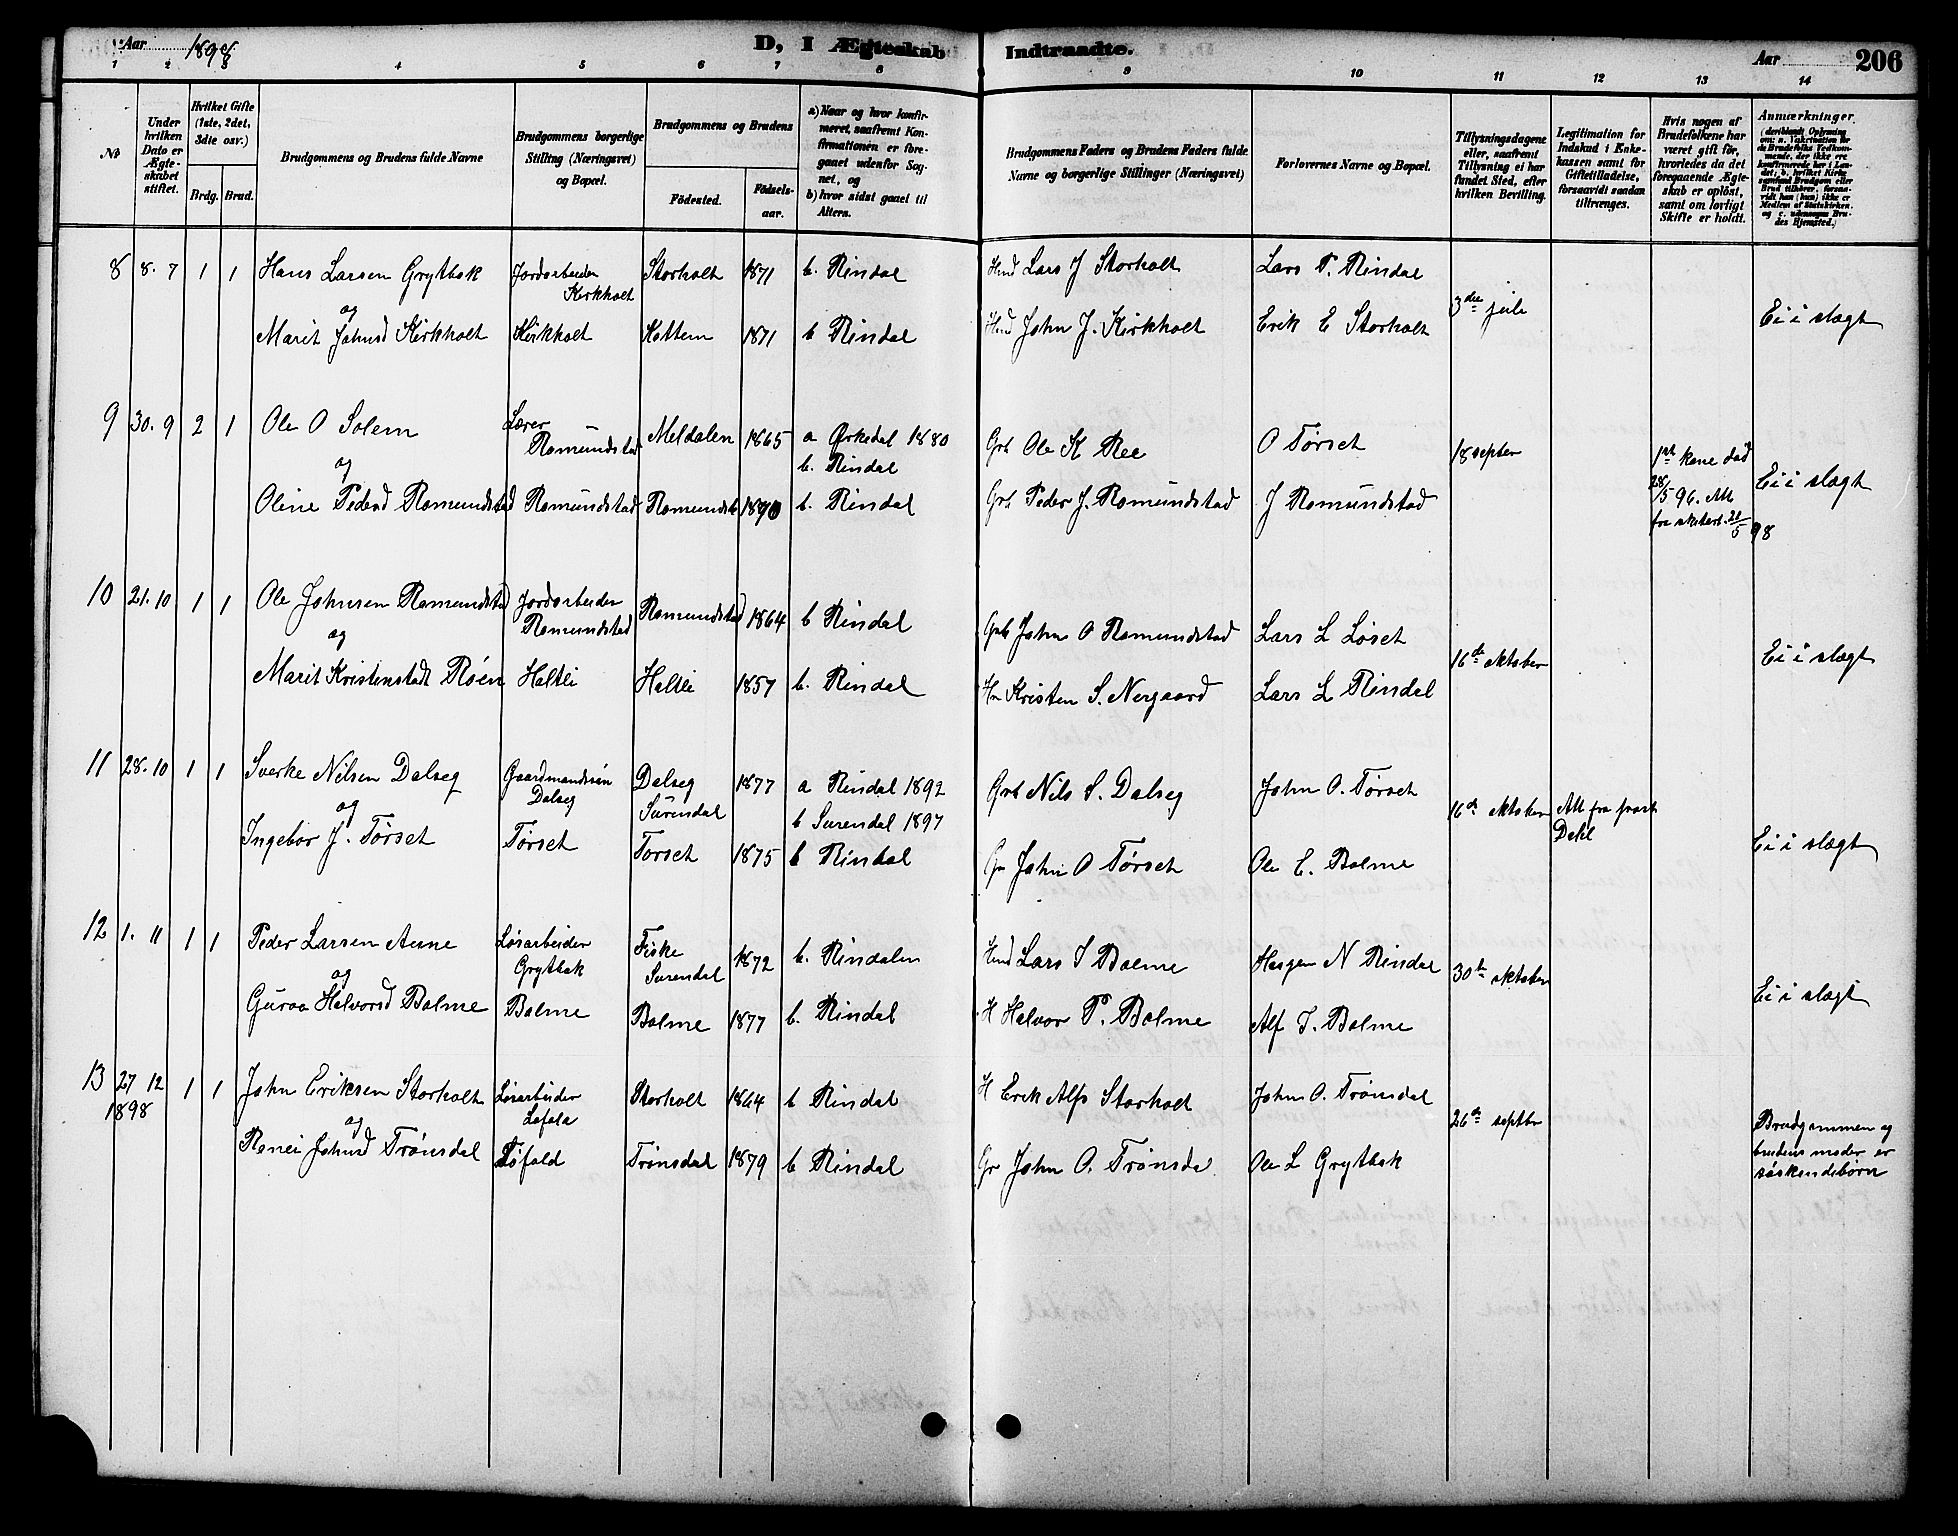 Aar 1898
D, I Ægteskab Indtraadte.
Aar 206
1 2 3 4 5 6 7 8 9 10 11 12 13 14
No
Under hvilken Dato er Ægteskabet stiftet.
Hvilket Gifte (1ste, 2det, 3die osv.)
Brdg. Brud.
Brudgommens og Brudens fulde Navne
Brudgommens borgerlige Stilling (Næringsvei) og Bopæl.
Brudgommens og Brudens
Fødested. Fødselsaar.
a) Naar og hvor konfirmeret, saafremt Konfirmationen er foregaaet udenfor Sognet, og
b) hvor sidst gaaet til Alters.
Brudgommens Faders og Brudens Faders fulde Navne og borgerlige Stillinger (Næringsvei)
Forlovernes Navne og Bopæl.
Tillysningsdagene eller, saafremt Tillysning ei har fundet Sted, efter hvilken Bevilling.
Legitimation for Indskud i Enkekassen samt for Giftetilladelse, forsaavidt saadan tiltrænges.
Hvis nogen af Brudefolkene har været gift før, hvorledes da det foregaaende Ægteskab er opløst, samt om lovligt Skifte er holdt.
Anmærkninger.
8 8. 7 1 1 Hans Larsen Grytbak Jordarbeider Storholt 1871 b. Rindal Hmd Lars J Storholt Lars P. Rindal
Kirkholt
og 3die juli
Marit Johnsd Kirkholt Kirkholt Kottem 1871 b Rindal Hmd John J. Kirkholt Erik E Storholt Ei i slægt
9 30. 9 2 1 Ole O Solem Lærer Meldalen 1865 a Orkedal 1880 Grb Ole K Ree O Tørset 18 septer 1ste kone død
Romundstad b. Rindal
og 28/5 96. Att Ei i slægt
Oline Pedersd Romundstad Romundstad Romundst 1870 b. Rindal Grb Peder J. Romundstad J Romundstad fra skifter. 21/5 98
10 21. 10 1 1 Ole Johnsen Romundstad Jordarbeider Romundstad 1864 b Rindal Grb John O Romundstad Lars L Løset
Romundstad
og 16de oktober Ei i slægt
Marit Kristensdatt Røen Haltli Haltli 1857 b. Rindal Hm Kristen S. Nergaard Lars L Rindal
11 28. 10 1 1 Sverke Nilsen Dalseg Gaardmandssøn Dalseg 1877 a Rindal 1892 Grb Nils S. Dalseg John O. Tørset
Dalseg Surendal b Surendal 1897
og 16de oktober Att fra prost Dahl
Ingebor J. Tørset Tørset Tørset 1875 b Rindal Gr John O Tørset Ole E. Bolme Ei i slægt
12 1. 11 1 1 Peder Larsen Aune Løsarbeider Fiske 1872 b. Rindalen Hmd Lars I Bolme Hagen N Rindal
Grytbak Surendal
og 30te oktober
Guroa Halvorsd Bolme Bolme Bolme 1877 b. Rindal H Halvor P. Bolme Alf I. Bolme Ei i slægt
13 27 12 1 1 John Eriksen Storholt Løsarbeider Storholt 1864 b Rindal H Erik Alfs Storholt John O. Trønsdal
1898 Løfale
og 26de septbr Brudgommen og
Ranei Johnsd Trønsdal Løfald Trønsdal 1879 b Rindal Gr John O. Trønsda Ole L Grytbak brudens moder er
søskendebørn